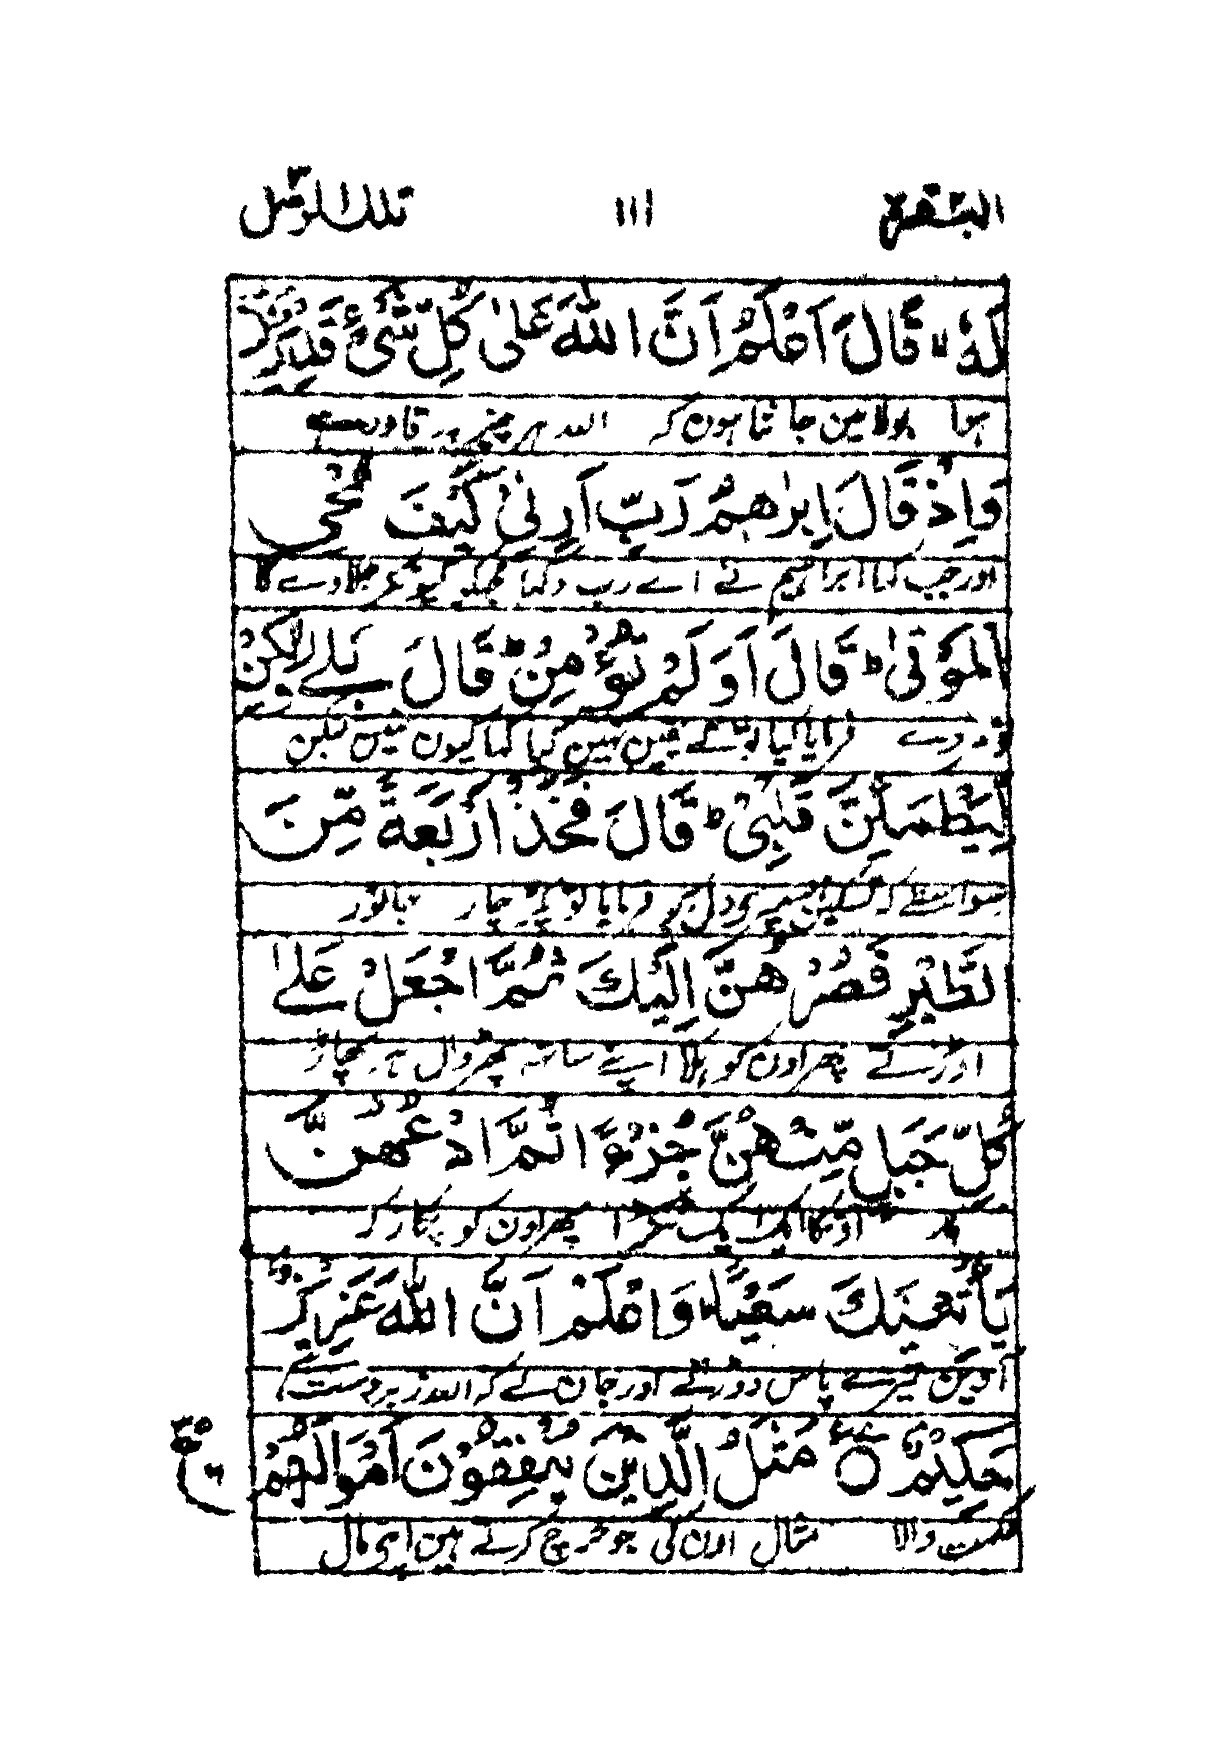 البقرة ۱۱۱ تلك الرسل ۳
لَهٗ ۙ قَالَ اَعْلَمُ اَنَّ اللّٰهَ عَلٰى كُلِّ شَیْءٍ قَدِیْرٌ
ہوا بولا مین جانتا ہون کہ اللہ ہر چیز پر قادر ہے
وَاِذْ قَالَ اِبْرٰهٖمُ رَبِّ اَرِنِیْ كَیْفَ تُحْیِ
اور جب کہا ابراہیم نے اے رب دکھا مجھکو کیونکر جلاوے گا
الْمَوْتٰی ؕ قَالَ اَوَلَمْ تُؤْمِنْ ؕ قَالَ بَلٰی وَلٰكِنْ
مردے فرمایا کیا تونے یقین نہین کیا کہا کیون نہین لیکن
لِّیَطْمَئِنَّ قَلْبِیْ ؕ قَالَ فَخُذْ اَرْبَعَةً مِّنَ
اسواسطے کہ تسکین ہو میرے دل کو فرمایا تو پکڑ چار جانور
الطَّیْرِ فَصُرْهُنَّ اِلَیْكَ ثُمَّ اجْعَلْ عَلٰی
اوڑتے پھر اونکو ہلا اپنے ساتھ پھر ڈال ہر پہاڑ
كُلِّ جَبَلٍ مِّنْهُنَّ جُزْءًا ثُمَّ ادْعُهُنَّ
پر اونکا ایک ایک ٹکڑا پھر اون کو پکار کہ
یَاْتِیْنَكَ سَعْیًا ؕ وَاعْلَمْ اَنَّ اللّٰهَ عَزِیْزٌ
آوین تیرے پاس دوڑتے اور جان لے کہ اللہ زبردست ہے
حَكِیْمٌ ۝ مَثَلُ الَّذِیْنَ یُنْفِقُوْنَ اَمْوَالَهُمْ
حکمت والا مثال اون کی جو خرچ کرتے ہین اپنے مال